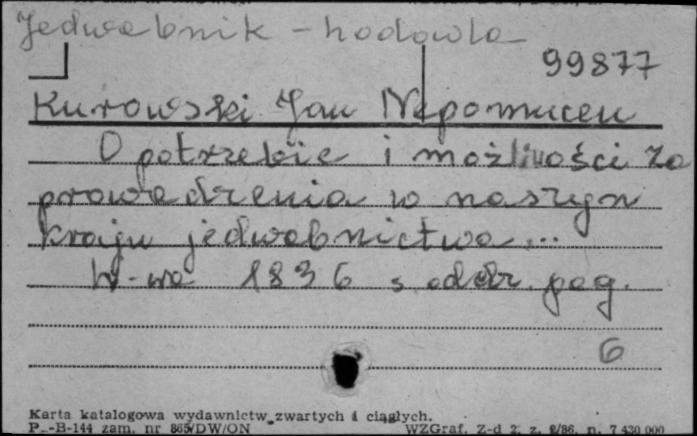 Jedwabnik - hodowla
99877
Kurowski Jan Nepomucen
O potrzebie i możliwości za
prowadzenia w naszym
kraju jedwabnictwa...
W-wa 1836 s. odbr. pag.
6
Karta katalogowa wydawnictw zwartych i ciągłych.
P.-B-144 zam. nr 865/DW/ON WZGraf. Z-d 2, z. 2/86, n. 7 430 000